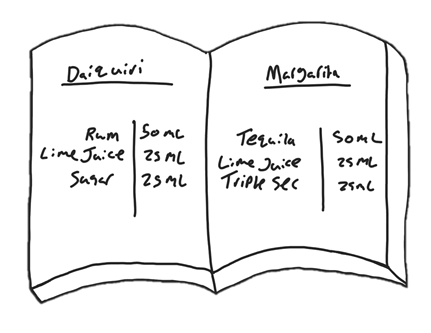 Daiquiri
Rum 50mL
Lime Juice 25mL
Sugar 25mL
Margarita
Tequila 50mL
Lime Juice 25mL
Triple Sec 25mL